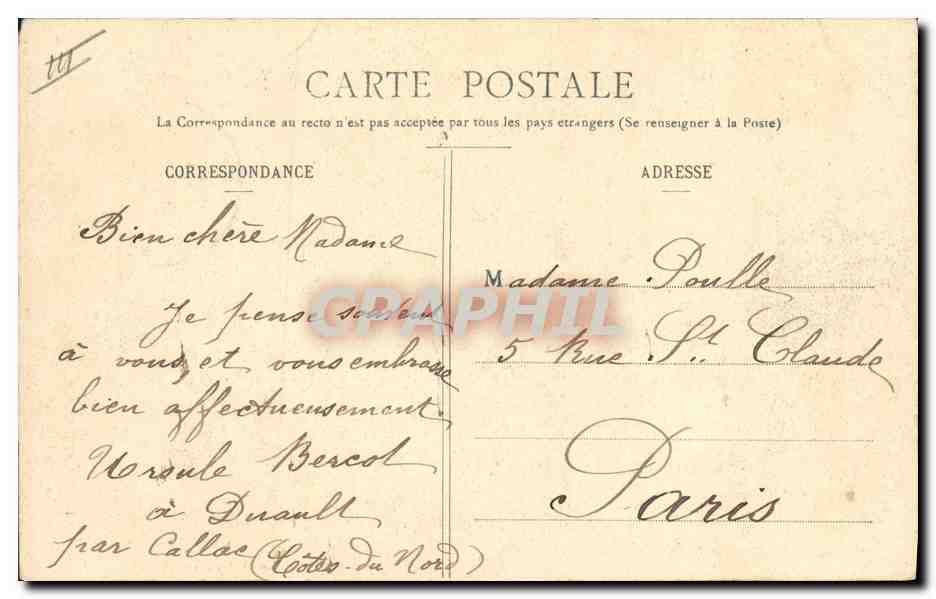 CARTE POSTALE
La Correspondance au recto n'est pas acceptée par tous les pays etrangers (Se renseigner à la Poste)
CORRESPONDANCE
Bien chère Madame
Je pense souvent
à vous, et vous embrasse
bien affectueusement.
Ursule Bercot
à Duault
par Callac (Côtes-du Nord)
ADRESSE
Madame Poulle
5 Rue St. Claude
Paris
CPAPHIL